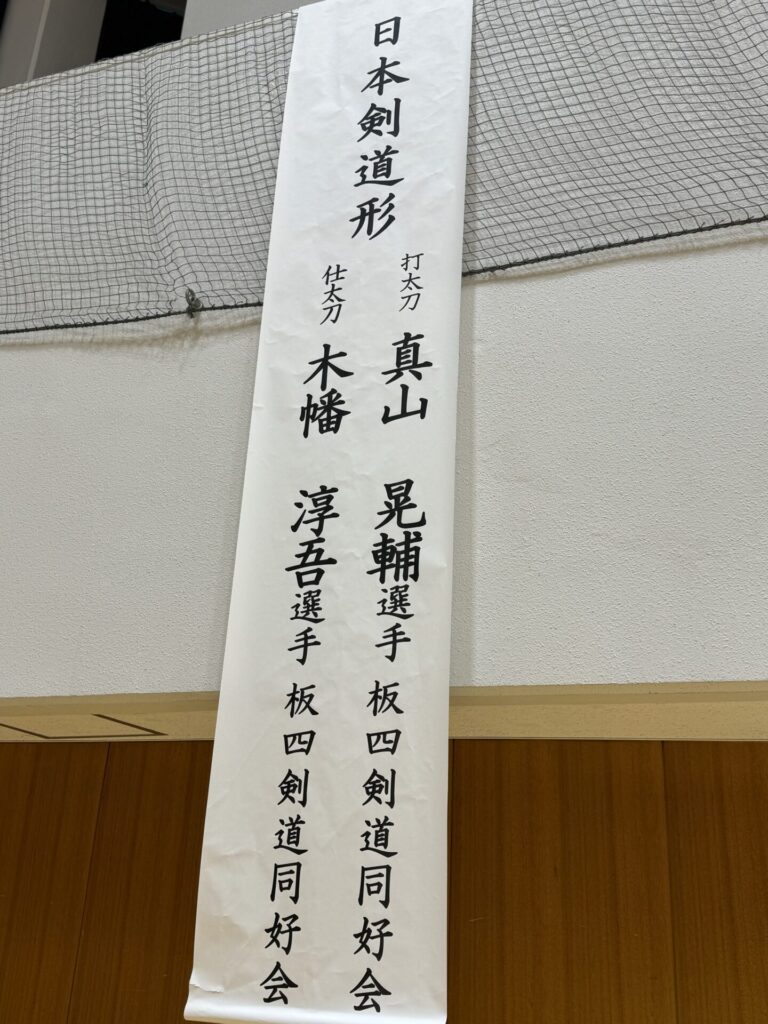 日本剣道形
打太刀 真山 晃輔選手 板四剣道同好会
仕太刀 木幡 淳吾選手 板四剣道同好会